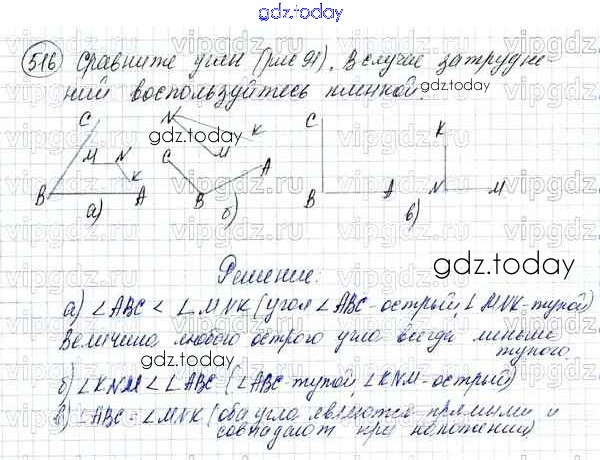 gdz.today
516 Сравните углы (рис 91). В случае затрудне-
ний воспользуйтесь пленкой.
gdz.today
C M N K B A а)
N K M C A B б)
gdz.today
C B A K N M в)
Решение.
gdz.today
а) ∠ABC < ∠MNK (угол ∠ABC - острый, ∠MNK - тупой)
Величина любого острого угла всегда меньше
тупого.
gdz.today
б) ∠KNM < ∠ABC (∠ABC - тупой, ∠KNM - острый)
в) ∠ABC = ∠MNK (оба угла являются прямыми и
совпадают при наложении)
gdz.today
vipgdz.ru